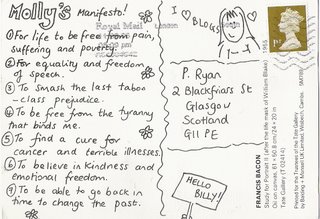 Molly's Manifesto!
① For life to be free from pain,
suffering and poverty.
② For equality and freedom
of speech.
③ To smash the last taboo
-class prejudice.
④ To be free from the tyranny
that binds me.
⑤ To find a cure for
cancer and terrible illnesses.
⑥ To believe in kindness and
emotional freedom.
⑦ To be able to go back in
time to change the past.
Royal Mail
London
I ♡ BLOGS
1st
P. Ryan
2 Blackfriars St
Glasgow
Scotland
G11 PE
HELLO
BILLY!
FRANCIS BACON
Study for Portrait II (after the life mask of William Blake) 1955
Oil on canvas, 61 × 50.8 cm/24 × 20 in
Tate Gallery (T 02414)